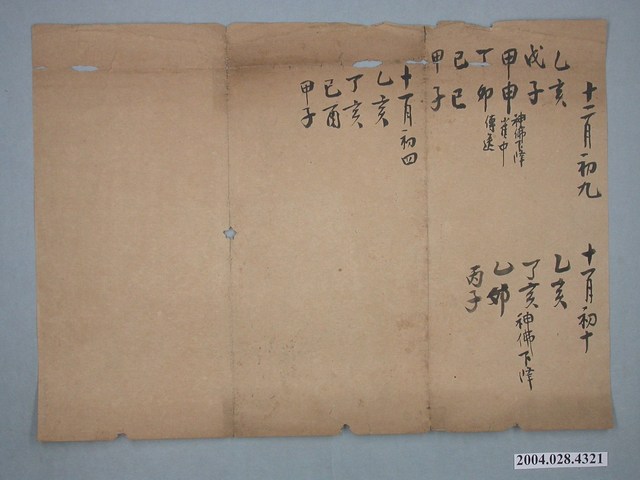 十二月初九
乙亥
戊子
甲申 神佛下降
丁卯
己巳
甲子
十一月初十
乙亥
丁亥 神佛下降
乙卯
丙子
十一月初四
乙亥
丁亥
己酉
甲子
2004.028.4321